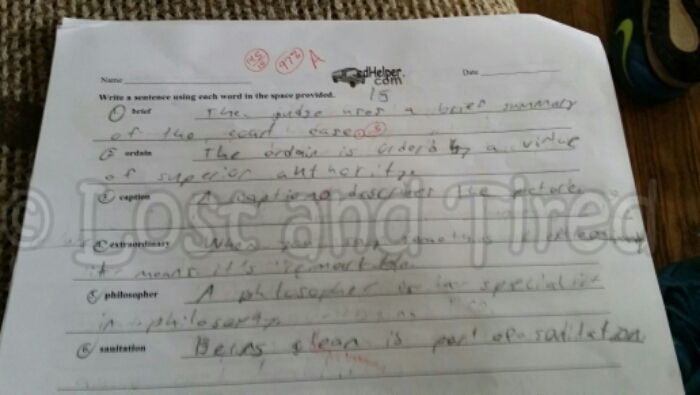 45/15 97% A
edHelper.com
Name Date
Write a sentence using each word in the space provided. 15
① brief The judge uses a brief summary
of the court case. .5
② ordain The ordain is orderd by a virtue
of superior authority.
③ caption A captiong describes the picture
© Lost and Tired
④ extraordinary When you say something
it means it's
⑤ philosopher A philosopher is in specialize
in philosophy
⑥ sanitation Being clean is part of a